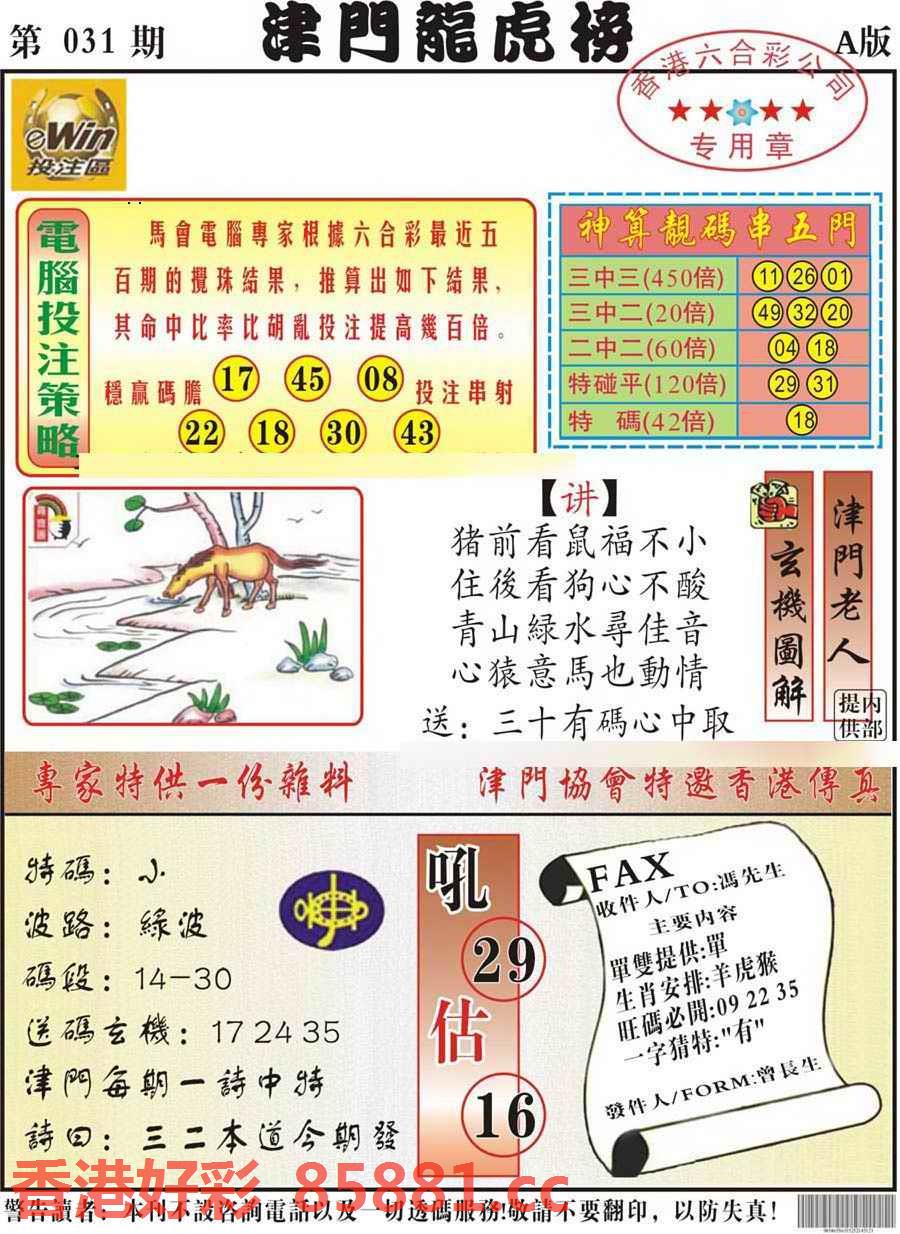 第 031 期
津門龍虎榜
A版
香港六合彩公司
专用章
eWin
投注區
電腦投注策略
馬會電腦專家根據六合彩最近五
百期的攪珠結果，推算出如下結果，
其命中比率比胡亂投注提高幾百倍。
穩贏碼膽 17 45 08 投注串射
22 18 30 43
神算靚碼串五門
三中三(450倍) 11 26 01
三中二(20倍) 49 32 20
二中二(60倍) 04 18
特碰平(120倍) 29 31
特 碼(42倍) 18
【讲】
猪前看鼠福不小
住後看狗心不酸
青山緑水尋佳音
心猿意馬也動情
送：三十有碼心中取
玄機圖解
津門老人
内部提供
專家特供一份雜料
津門協會特邀香港傳真
特碼：小
波路：綠波
碼段：14-30
送碼玄機：17 24 35
津門每期一詩中特
詩曰：三二本道今期發
吼
29
估
16
FAX
收件人/TO:馮先生
主要内容
單雙提供:單
生肖安排:羊虎猴
旺碼必開:09 22 35
一字猜特:"有"
發件人/FORM:曾長生
香港好彩 85881.cc
警告讀者：本刊不設咨詢電話以及一切透碼服務!敬請不要翻印，以防失真!